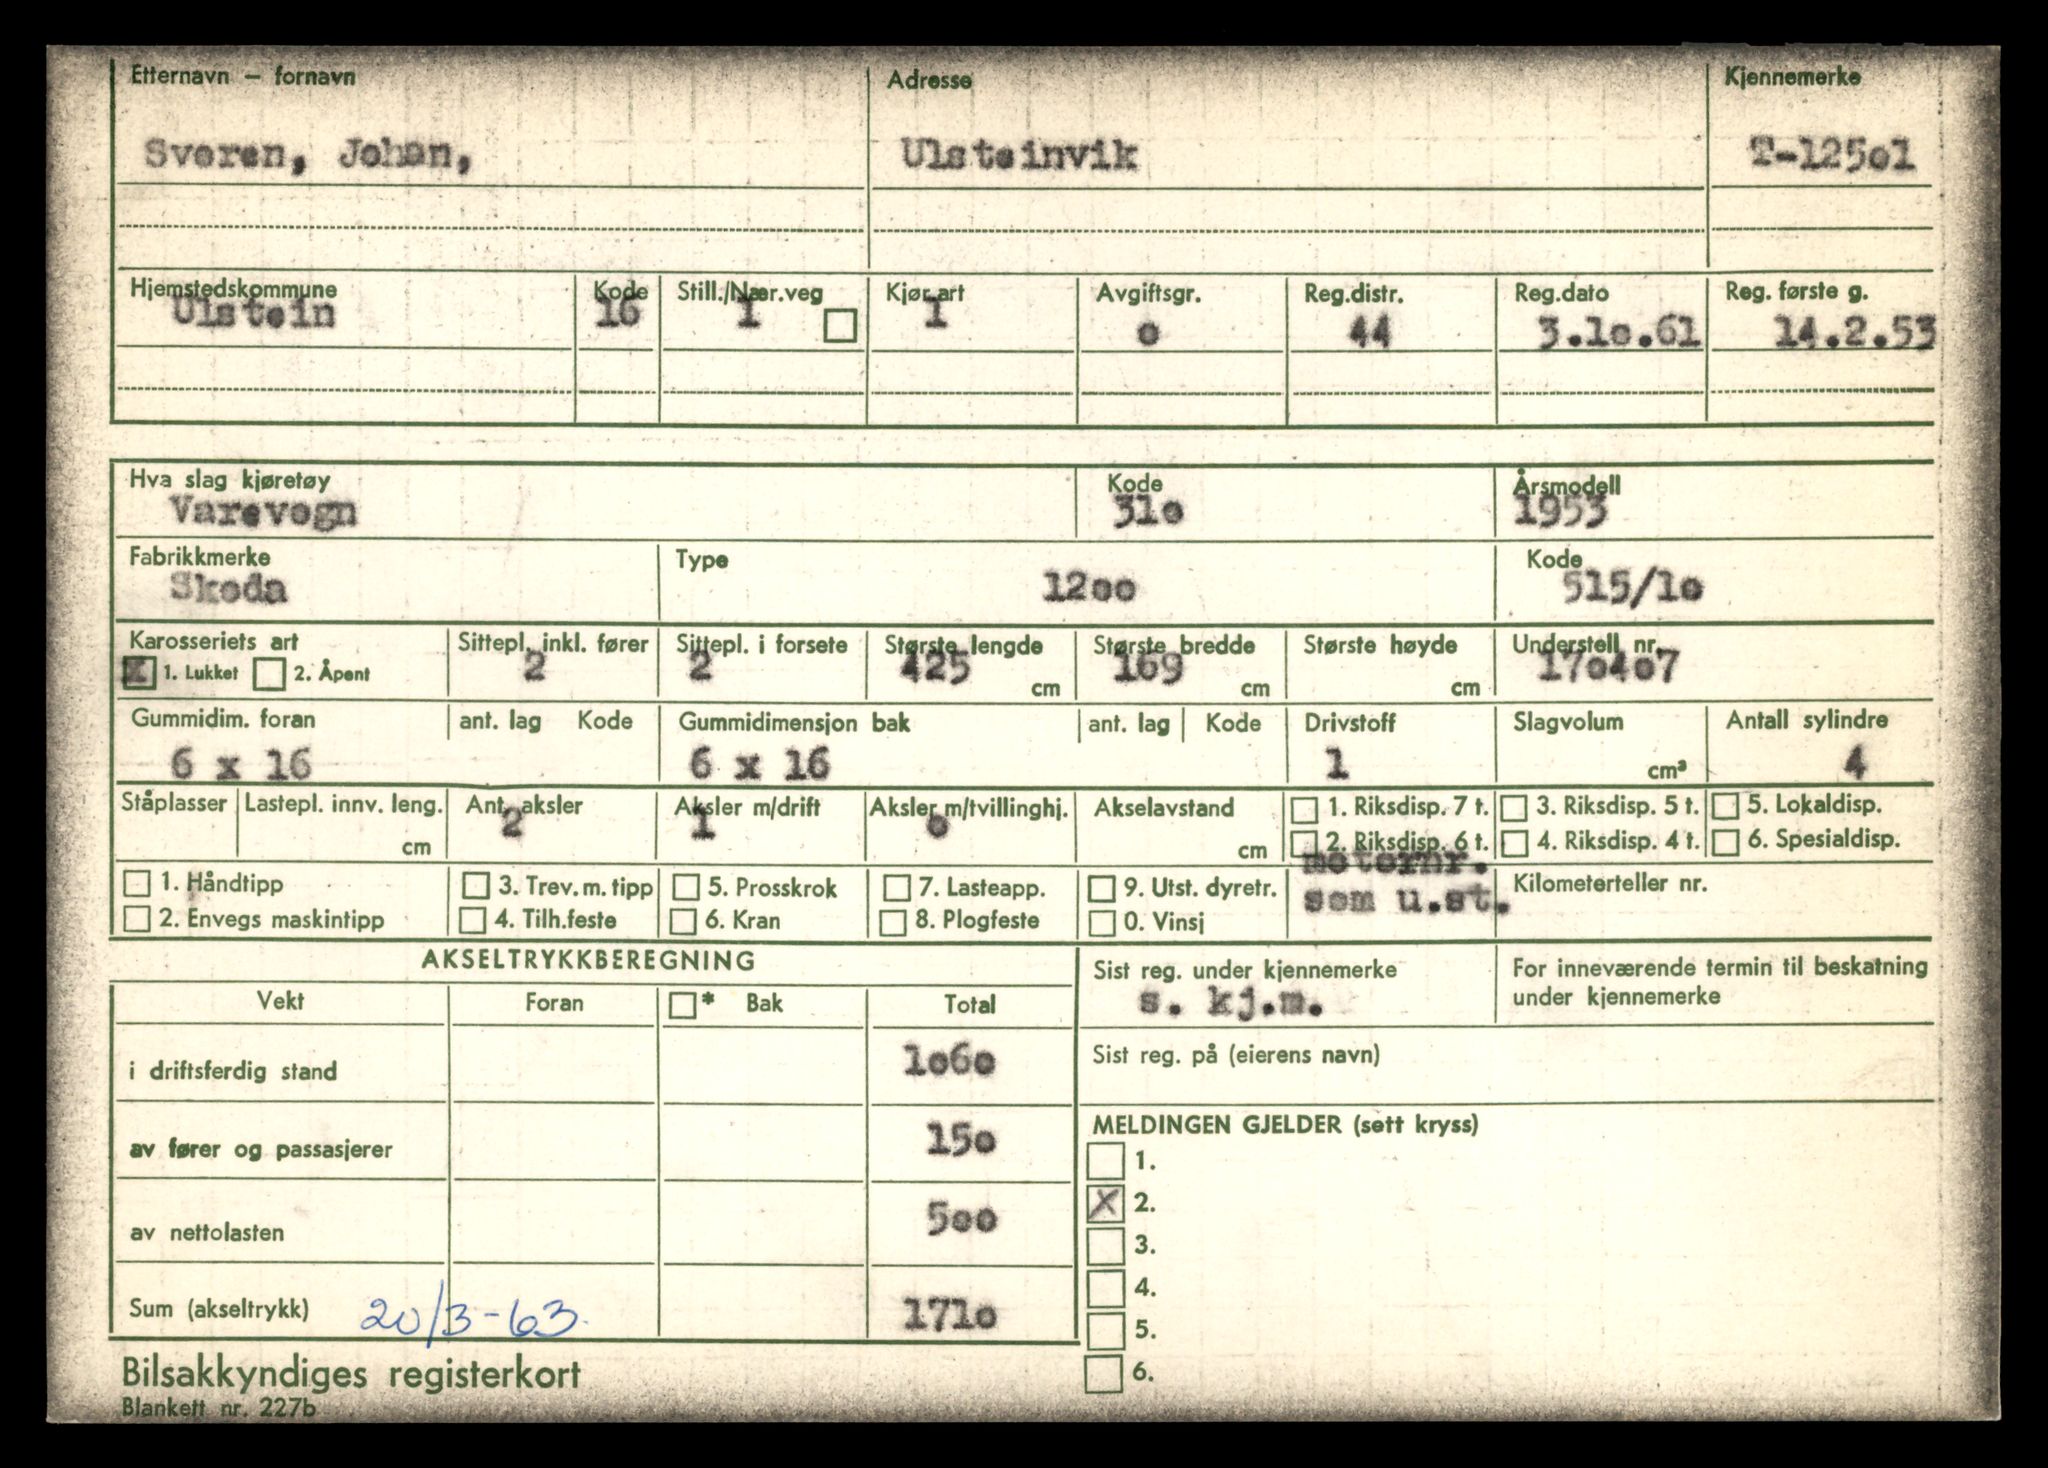 Etternavn – fornavn Adresse Kjennemerke
Sveren, Johan, Ulsteinvik T-125o1
Hjemstedskommune Kode Still./Nær.veg Kjør.art Avgiftsgr. Reg.distr. Reg.dato Reg. første g.
Ulstein 16 1 1 o 44 3.1o.61 14.2.53
Hva slag kjøretøy Kode Årsmodell
Varevogn 31o 1953
Fabrikkmerke Type Kode
Skoda 12oo 515/1o
Karosseriets art Sittepl. inkl. fører Sittepl. i forsete Største lengde Største bredde Største høyde Understell nr.
X 1. Lukket 2. Åpent 2 2 425 cm 169 cm cm 17o4o7
Gummidim. foran ant. lag Kode Gummidimensjon bak ant. lag Kode Drivstoff Slagvolum Antall sylindre
6 x 16 6 x 16 1 cm³ 4
Ståplasser Lastepl. innv. leng. Ant. aksler Aksler m/drift Aksler m/tvillinghj. Akselavstand 1. Riksdisp. 7 t. 3. Riksdisp. 5 t. 5. Lokaldisp.
cm 2 1 o cm 2. Riksdisp. 6 t. 4. Riksdisp. 4 t. 6. Spesialdisp.
motornr.
1. Håndtipp 3. Trev. m. tipp 5. Prosskrok 7. Lasteapp. 9. Utst. dyretr. som u.st. Kilometerteller nr.
2. Envegs maskintipp 4. Tilh.feste 6. Kran 8. Plogfeste 0. Vinsj
AKSELTRYKKBEREGNING
Sist reg. under kjennemerke For inneværende termin til beskatning
s. kj.m. under kjennemerke
Vekt Foran * Bak Total
i driftsferdig stand 1o6o
Sist reg. på (eierens navn)
av fører og passasjerer 15o
MELDINGEN GJELDER (sett kryss)
1.
X 2.
av nettolasten 5oo
3.
4.
Sum (akseltrykk) 20/3-63. 171o
5.
6.
Bilsakkyndiges registerkort
Blankett nr. 227b